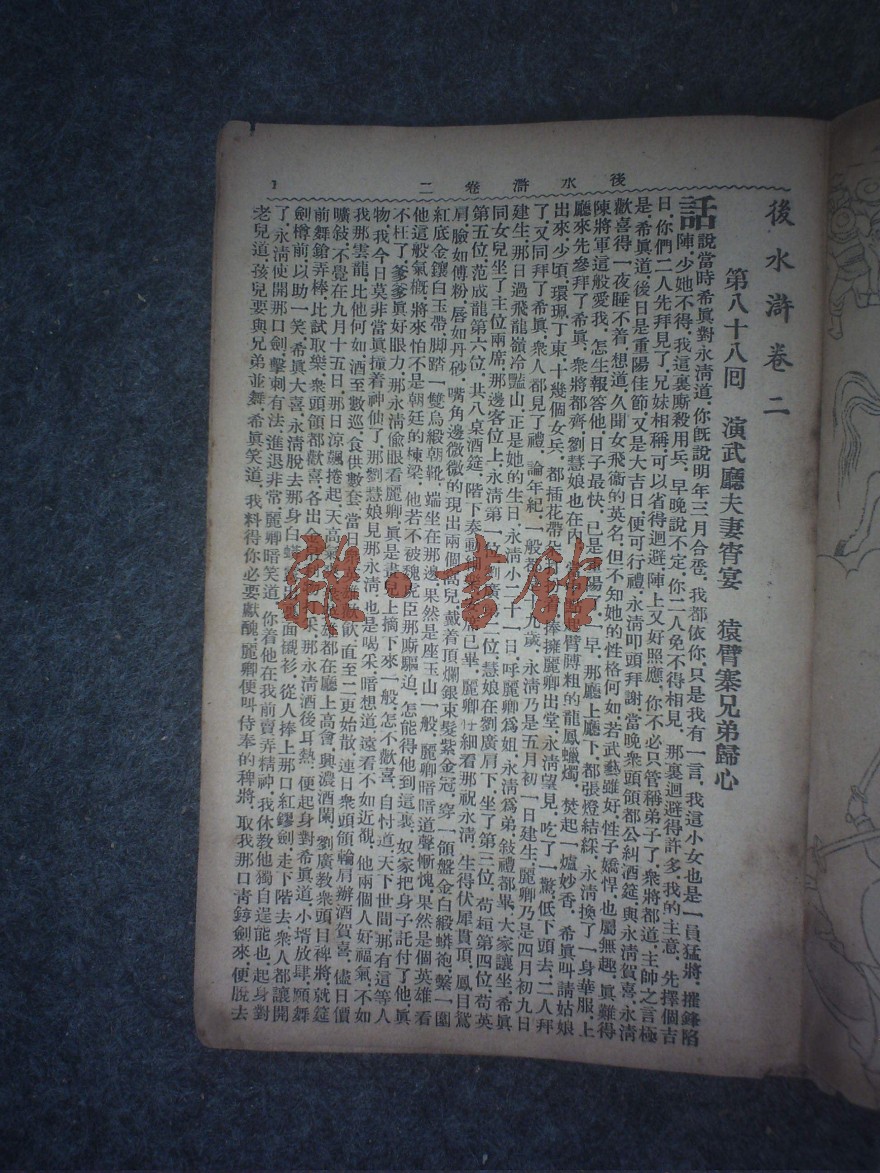 後水滸卷二
後水滸卷二
第八十八囘　演武廳夫妻宵宴　猿臂寨兄弟歸心
話說當時希眞對永淸道，你旣說明年三月合巹，我都依你，只是我有一言，我這小女也是一員猛將，摧鋒陷
陣，少她不得，我這裏廝殺用兵，早晚說不定，你二人免不得相見，那裏迴避得許多，我的主意，先擇個吉
日，你們二人先拜見了，兄妹相稱，可以省得迴避，陣上又好照應，你不必只管稱弟子了，衆將都道，主帥之言極
是，希眞道，後日是重陽佳節，又是大吉日，便可行禮，永淸叩頭拜謝，當晚衆頭領都公糾酒筵，與永淸賀喜，永淸
歡喜得一夜睡不着，想道，久聞女飛衞的英名，但不知她的性格何如，若武藝雖好，性子嬌悍，也屬無趣，眞難得
陳將軍這般愛我，怎生報答他，日子最快，已是
早，那廳上廳下，都張燈結綵，永淸換了一身華服，上
廳來先參拜了希眞，衆將都齊，劉慧娘也在內
臂膊粗的龍鳳蠟燭，焚起一爐妙香，希眞叫請姑娘
出來，少頃，環珮丁東，十幾個女兵，都插花帶
捧擁麗卿出堂，永淸望見，吃了一驚，低下頭去，二人拜
了，又同拜了希眞，衆人都見了禮，論年紀，一般都
九歲，永淸乃是五月初一日建生，麗卿乃是四月初九日
建生，那日過飛龍嶺冷豔山，正是她的生日，永淸小二十一日，呼麗卿爲姐，永淸爲弟，敍禮都畢，大家讓坐，希眞
同女兒坐了主位兩席，那邊客位上，永淸第一
位，慧娘在劉廣肩下，坐了第三位，苟桓第四位，苟英
第五位，范成龍第六位，共八桌酒筵，階下奏動
已畢，麗卿仔細看那祝永淸，生得伏犀貫頂，鳳目鴛
肩，臉如傅粉，唇如丹砂，嘴角邊微微的現出兩個窩兒，戴着頂爛銀束髮紫金冠，穿一領盤金白緞蟒袍，繫一圍
紅底金鑲白玉帶，脚踏一雙烏緞朝靴，端坐在那邊，果然是座玉山一般，麗卿暗暗道聲慚愧，果然是個英雄，看
他這般氣槪，將來怕不是朝廷的棟梁，他若不被魏
臣那廝驅迫，怎能得他到這裏，奴家把身子託付了他，眞
不枉了，爹爹眞好眼力，那永淸偸眼看麗卿，眞是畫
上摘下來一般，怎不歡喜，自忖道，天下世間，那有這等人
物，我今日莫非當眞撞着神仙了，那劉慧娘見那永淸，也是喝采，暗想道，遠看不如近覩，他兩個人好福氣，不如
我那雲龍，比他何如，酒至數巡，食供數套，當日
歡，直至二更始散，連日衆頭領輪肩辦酒賀喜，儘日價
曠敍，不覺在九月十五日，那日涼飊捲起，天高氣
雄都在廳上高會，興濃酒闌，劉廣教衆頭目裨將，就筵
前舞鎗弄棒，比試取樂，衆頭領都歡喜，各出金
采，那永淸酒後耳熱，便起身對希眞道，小壻放肆，願舞
劍樽前，以助一笑，希眞大喜，永淸脫去那身白蟒
出
面襯衫，從人捧上那口紅鏐劍，走下階去，衆人都讓開
了，永淸使開那口劍，擊刺有法，進退非常，麗卿暗笑道，你着他在我前賣弄精神，我休教他獨自逞能，也起身對
老兒道，孩兒要與兄弟並舞，希眞笑道，我料得你必要獻醜，麗卿便叫侍奉的裨將，取我那口靑錞劍來，便脫去
雜·書館